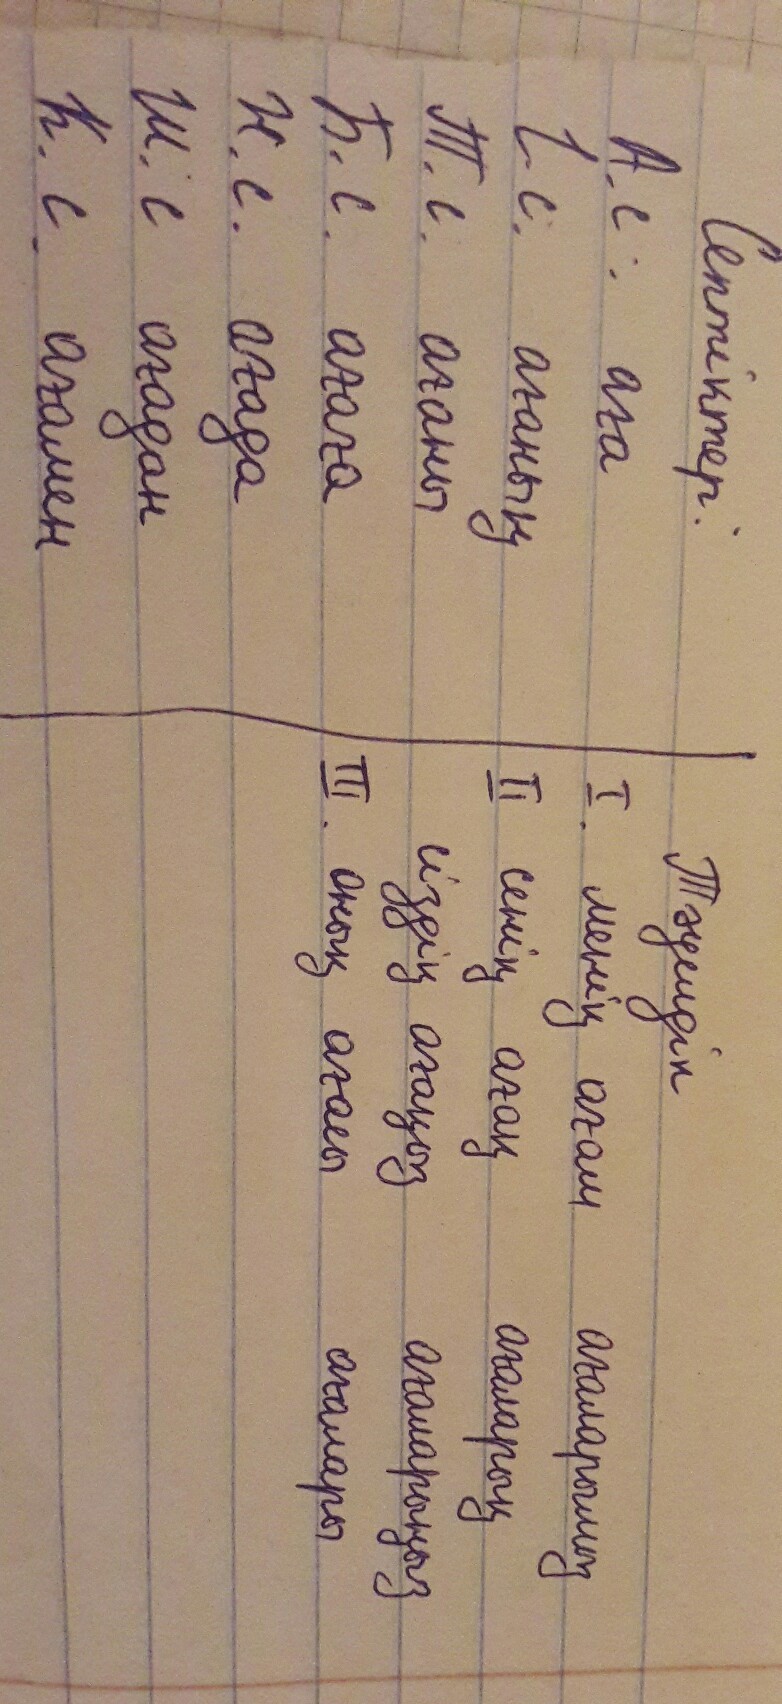 Септіктер.
А.с. аға
І.с. ағаның
Т.с. ағаны
Б.с. ағаға
Ж.с. ағада
Ш.с ағадан
К.с. ағамен
Тәуелдік
I. менің ағам ағаларымыз
II сенің ағаң ағаларың
сіздің ағаңыз ағаларыңыз
III. оның ағасы ағалары